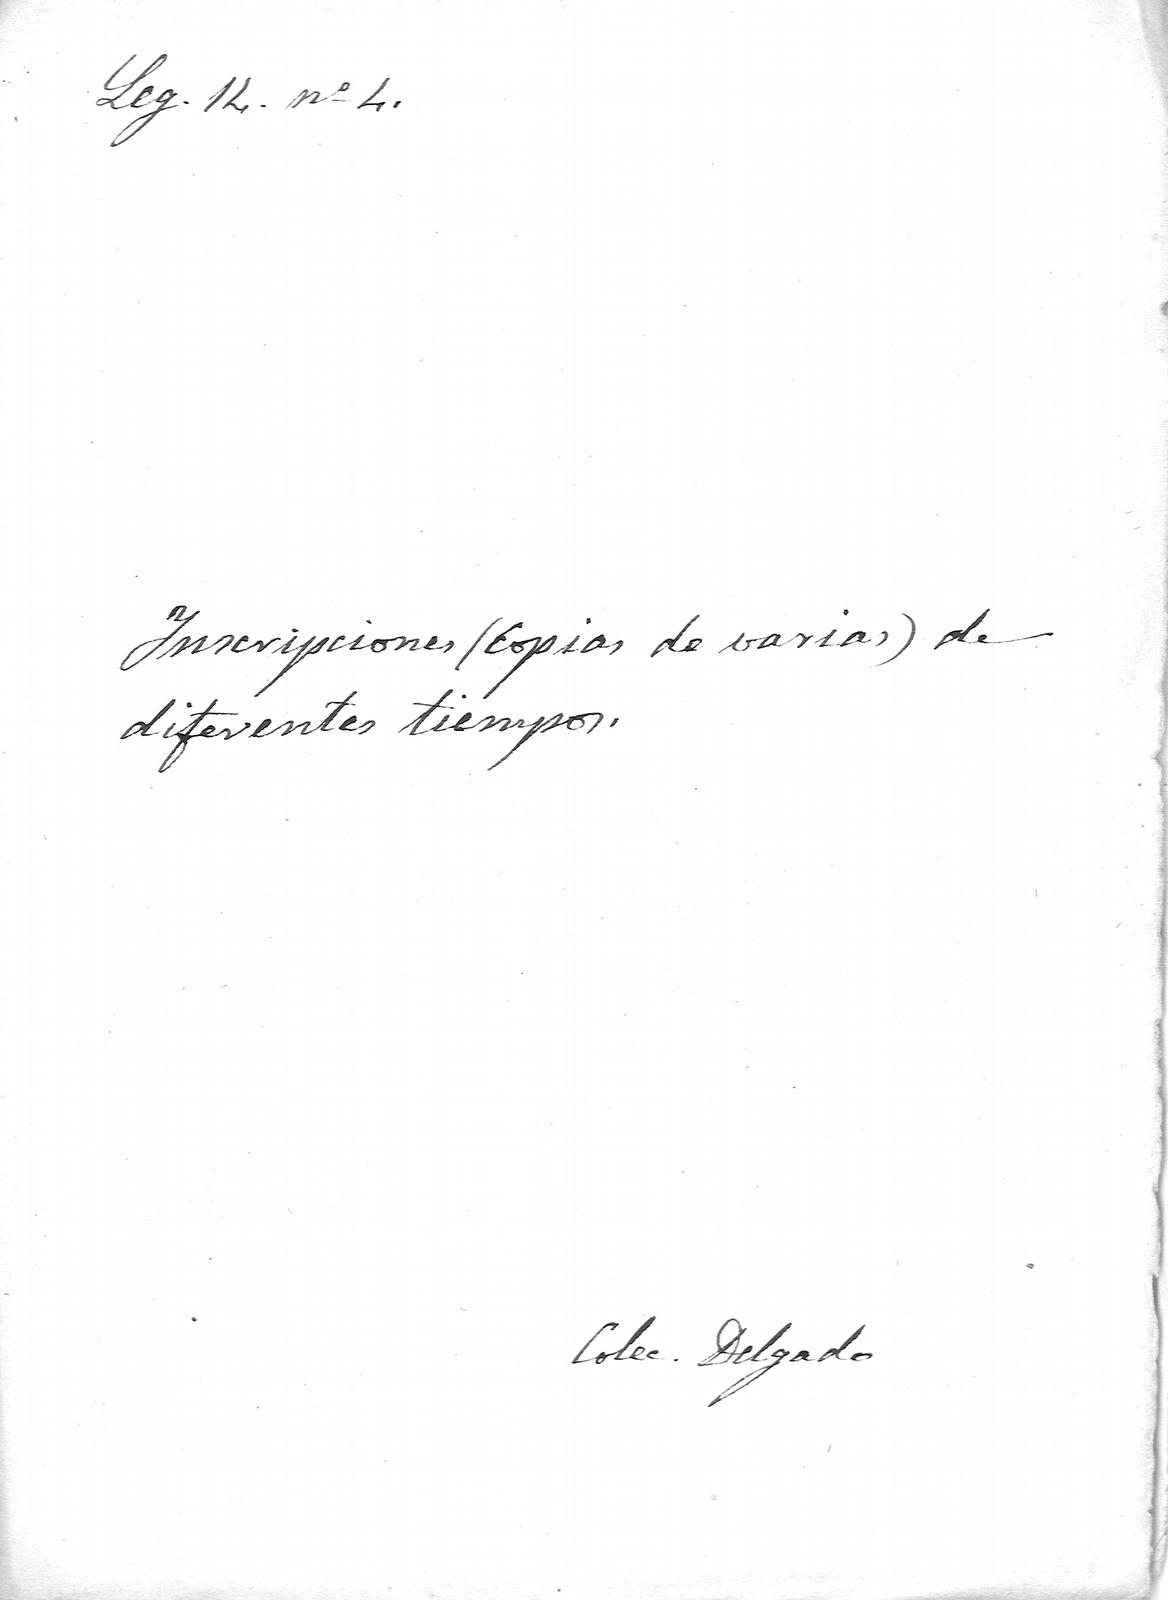 Leg. 12. nº 4.
Inscripciones (Copias de varias) de
diferentes tiempos.
Colec. Delgado